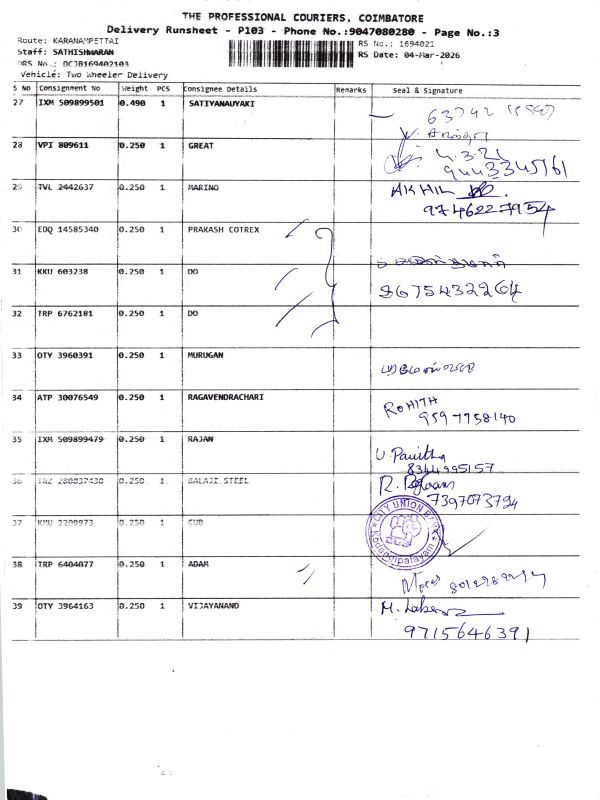 THE PROFESSIONAL COURIERS, COIMBATORE
Delivery Runsheet - P103 - Phone No.:9047080280 - Page No.:3
Route: KARANAMPETTAI
RS No.: 1694021
Staff: SATHISHWARAN
RS Date: 04-Mar-2026
DRS No.: DCJB169402103
Vehicle: Two Wheeler Delivery
S No Consignment No Weight PCS Consignee Details Remarks Seal & Signature
27 IXM 509899501 0.490 1 SATIYANAUYAKI
63742
28 VPI 809611 0.250 1 GREAT
4.3.21
9443345761
29 TVL 2442637 0.250 1 MARINO AKHIL
9746227954
30 EDQ 14585340 0.250 1 PRAKASH COTREX
31 KKU 603238 0.250 1 DO
8675432264
32 TRP 6762181 0.250 1 DO
33 OTY 3960391 0.250 1 MURUGAN
34 ATP 30076549 0.250 1 RAGAVENDRACHARI ROHITH
9597758140
35 IXM 509899479 0.250 1 RAJAN U. Pavitha
8344995157
36 TRZ 280037430 0.250 1 BALAJI STEEL
7397073794
37 KMU 2209973 0.250 1 CUB
CITY UNION BANK
38 TRP 6404077 0.250 1 ADAM
39 OTY 3964163 0.250 1 VIJAYANAND
9715646391